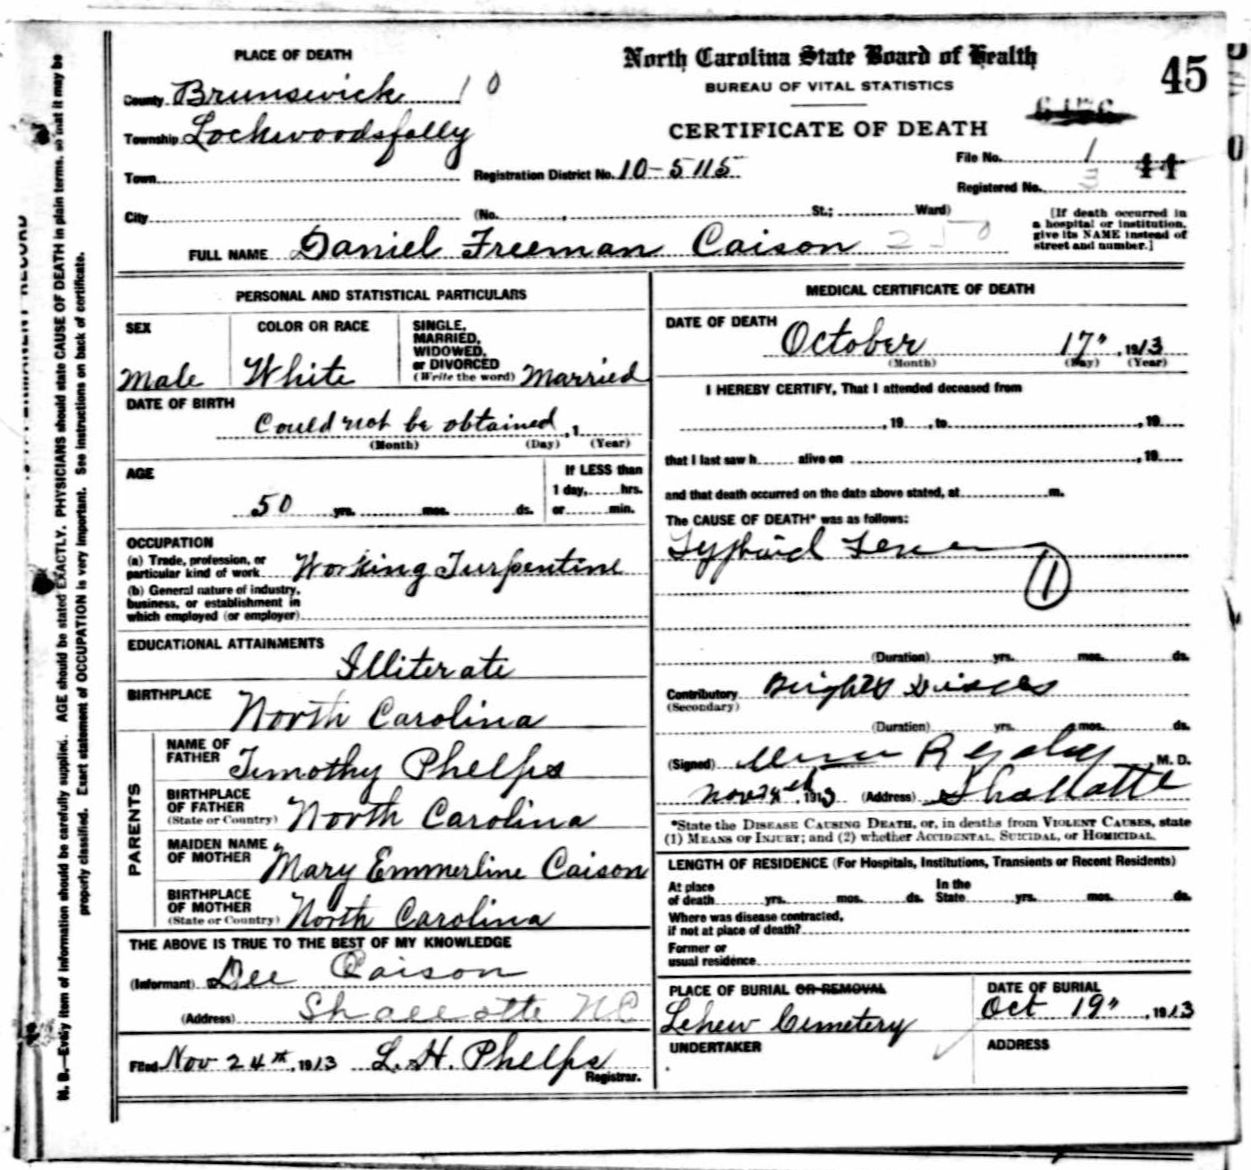 PLACE OF DEATH
County Brunswick 10
Township Lockwoodsfolly
Town
City
North Carolina State Board of Health
BUREAU OF VITAL STATISTICS
CERTIFICATE OF DEATH
45
Registration District No. 10-5115
File No. 1
44
Registered No. 3
(No. , St.; Ward)
[If death occurred in a hospital or institution, give its NAME instead of street and number.]
FULL NAME Daniel Freeman Caison 250
PERSONAL AND STATISTICAL PARTICULARS
SEX
Male
COLOR OR RACE
White
SINGLE, MARRIED, WIDOWED, or DIVORCED (Write the word) Married
DATE OF BIRTH
Could not be obtained, 1
(Month) (Day) (Year)
AGE
50 yrs. mos. ds.
If LESS than
1 day, hrs.
or min.
OCCUPATION
(a) Trade, profession, or
particular kind of work Working Turpentine
(b) General nature of industry,
business, or establishment in
which employed (or employer)
EDUCATIONAL ATTAINMENTS
Illiterate
BIRTHPLACE
North Carolina
PARENTS
NAME OF FATHER Timothy Phelps
BIRTHPLACE OF FATHER (State or Country) North Carolina
MAIDEN NAME OF MOTHER Mary Emmerline Caison
BIRTHPLACE OF MOTHER (State or Country) North Carolina
THE ABOVE IS TRUE TO THE BEST OF MY KNOWLEDGE
(Informant) Dee Caison
(Address) Shallotte NC
Filed Nov 24th, 1913 L. H. Phelps
Registrar.
MEDICAL CERTIFICATE OF DEATH
DATE OF DEATH
October 17", 1913
(Month) (Day) (Year)
I HEREBY CERTIFY, That I attended deceased from
, 19 , to , 19
that I last saw h alive on , 19
and that death occurred on the date above stated, at m.
The CAUSE OF DEATH* was as follows:
Typhoid Fever
1
(Duration) yrs. mos. ds.
Contributory Brights Diseas
(Secondary)
(Duration) yrs. mos. ds.
(Signed) M. D.
Nov 24th, 1913 (Address) Shallotte
*State the DISEASE CAUSING DEATH, or, in deaths from VIOLENT CAUSES, state
(1) MEANS OF INJURY; and (2) whether ACCIDENTAL, SUICIDAL, or HOMICIDAL.
LENGTH OF RESIDENCE (For Hospitals, Institutions, Transients or Recent Residents)
At place of death yrs. mos. ds. In the State yrs. mos. ds.
Where was disease contracted,
if not at place of death?
Former or
usual residence
PLACE OF BURIAL OR REMOVAL
Lehew Cemetery
DATE OF BURIAL
Oct 19", 1913
UNDERTAKER
ADDRESS
N. B.—Every item of information should be carefully supplied. AGE should be stated EXACTLY. PHYSICIANS should state CAUSE OF DEATH in plain terms, so that it may be
properly classified. Exact statement of OCCUPATION is very important. See instructions on back of certificate.